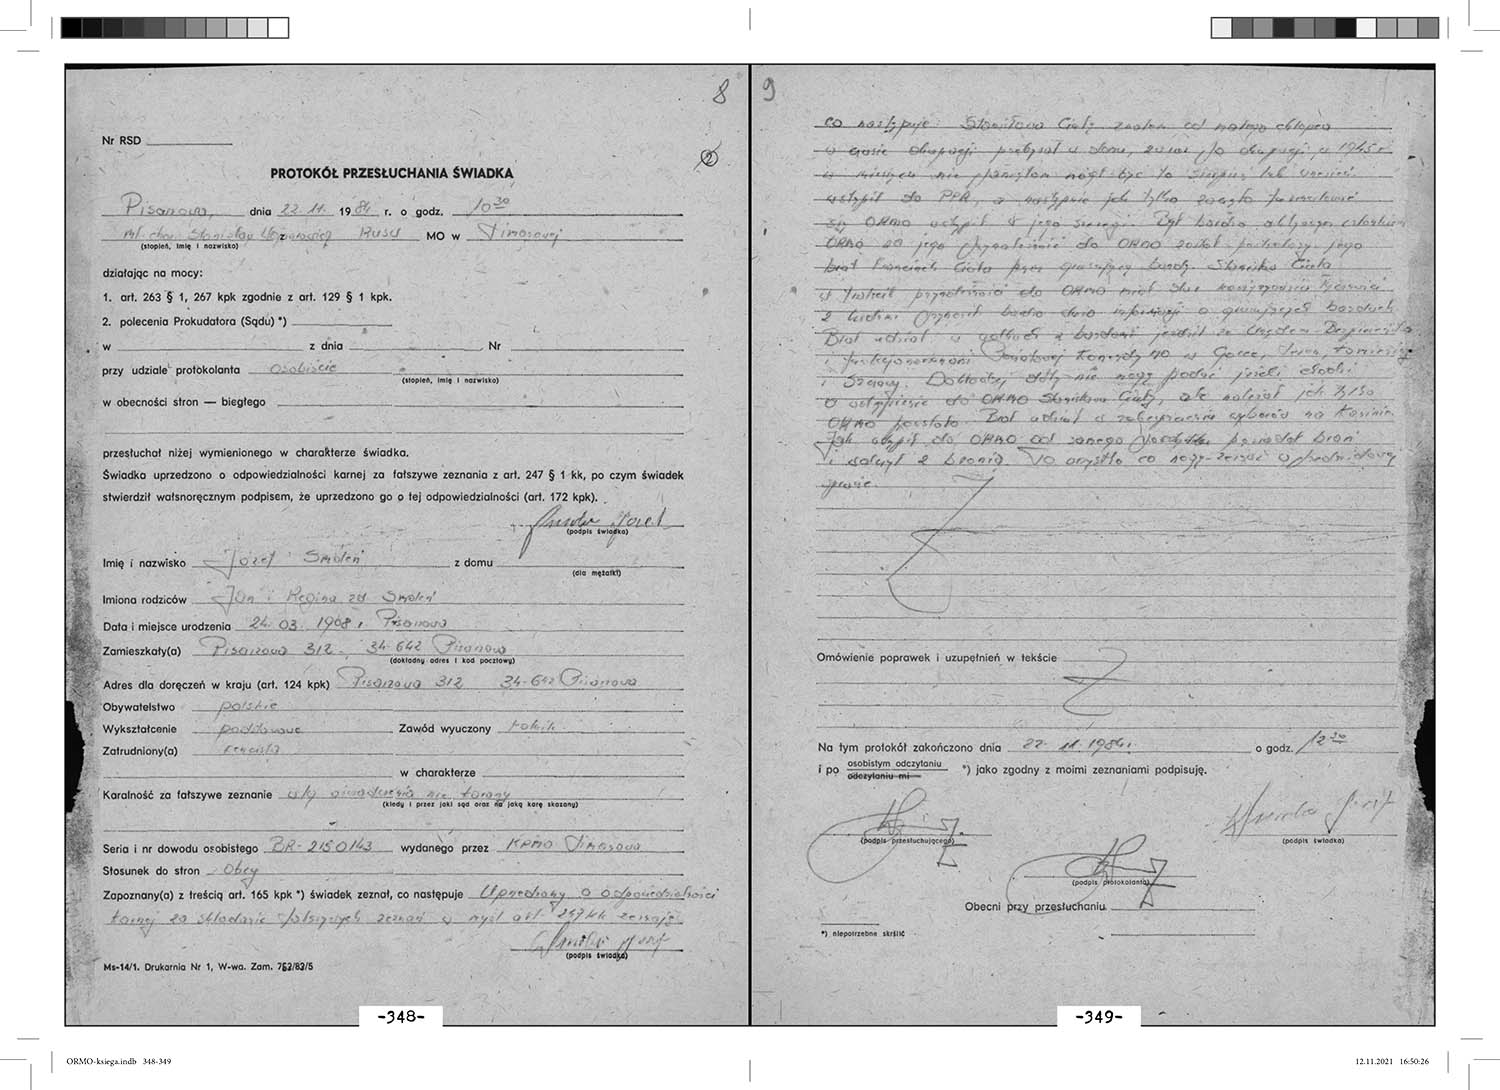 8
2
Nr RSD
PROTOKÓŁ PRZESŁUCHANIA ŚWIADKA
Pisarzowa, dnia 22.11. 1984 r. o godz. 10 30
Stanisław RUSW MO w Limanowej
(stopień, imię i nazwisko)
działając na mocy:
1. art. 263 § 1, 267 kpk zgodnie z art. 129 § 1 kpk.
2. polecenia Prokudatora (Sądu) *)
w z dnia Nr
przy udziale protokolanta osobiście
(stopień, imię i nazwisko)
w obecności stron — biegłego
przesłuchał niżej wymienionego w charakterze świadka.
Świadka uprzedzono o odpowiedzialności karnej za fałszywe zeznania z art. 247 § 1 kk, po czym świadek
stwierdził własnoręcznym podpisem, że uprzedzono go o tej odpowiedzialności (art. 172 kpk).
Smoleń Józef
(podpis świadka)
Imię i nazwisko Józef Smoleń z domu
(dla mężatki)
Imiona rodziców Jan i Regina zd. Smoleń
Data i miejsce urodzenia 24.03.1908 r. Pisarzowa
Zamieszkały(a) Pisarzowa 312, 34-642 Pisarzowa
(dokładny adres i kod pocztowy)
Adres dla doręczeń w kraju (art. 124 kpk) Pisarzowa 312 34-642 Pisarzowa
Obywatelstwo polskie
Wykształcenie podstawowe Zawód wyuczony rolnik
Zatrudniony(a) rencista
w charakterze
Karalność za fałszywe zeznanie wg oświadczenia nie karany
(kiedy i przez jaki sąd oraz na jaką karę skazany)
Seria i nr dowodu osobistego BR-2150143 wydanego przez KPMO Limanowa
Stosunek do stron Obcy
Zapoznany(a) z treścią art. 165 kpk *) świadek zeznał, co następuje Uprzedzony o odpowiedzialności
karnej za składanie fałszywych zeznań w myśl art. 247 kk zeznaję
Smoleń Józef
(podpis świadka)
Ms-14/1. Drukarnia Nr 1, W-wa. Zam. 762/82/5
-348-
9
co następuje: Stanisława Ciałę znałem od małego chłopca
w czasie okupacji przebywał w domu, zaraz po okupacji w 1945 r
w miesiącu nie pamiętam mógł być to sierpień lub wrzesień
wstąpił do PPR, a następnie jak tylko zaczęło
się ORMO wstąpił w jego szeregi. Był bardzo aktywnym członkiem
ORMO za jego przynależność do ORMO został jego
brat Ciała przez bandę. Stanisław Ciała
w przynależności do ORMO miał
z ludźmi bardzo dużo informacji o bandach
Brał udział w walkach z bandami jeździł ze Urzędem Bezpieczeństwa
i funkcjonariuszami Komendy MO w
i Dokładnej daty nie mogę podać jeżeli chodzi
o wstąpienie do ORMO Stanisława Ciały, ale należał jak tylko
ORMO powstało. Brał udział w zabezpieczeniu wyborów na
Jak wstąpił do ORMO od samego początku posiadał broń
i z bronią. To wszystko co mogę zeznać w przedmiotowej
sprawie.
Omówienie poprawek i uzupełnień w tekście
Na tym protokół zakończono dnia 22.11.1984 r. o godz. 12 30
i po osobistym odczytaniu
odczytaniu mi *) jako zgodny z moimi zeznaniami podpisuję.
Smoleń Józef
(podpis przesłuchującego) (podpis świadka)
(podpis protokolanta)
Obecni przy przesłuchaniu
*) niepotrzebne skreślić
-349-
ORMO-ksiega.indb 348-349
12.11.2021 16:50:26